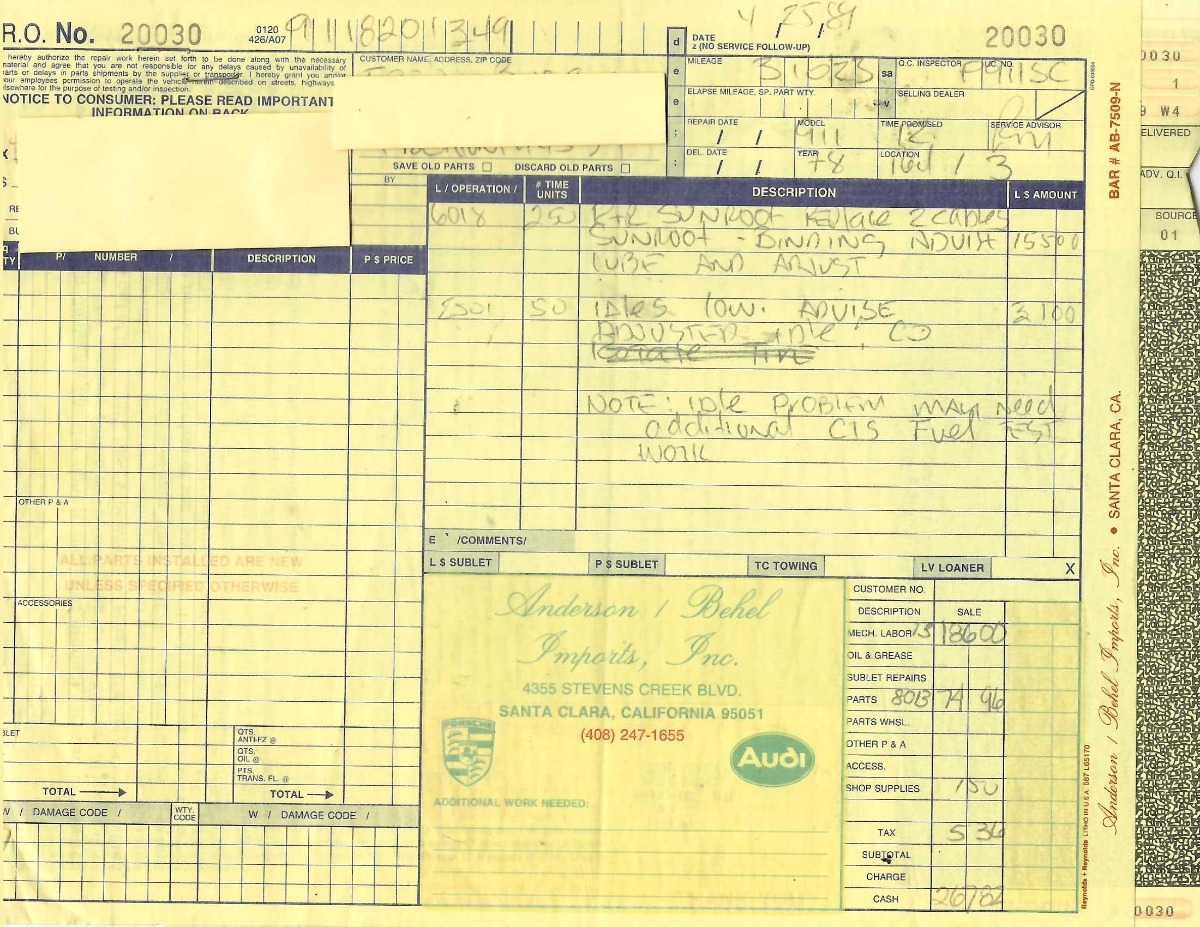 R.O. No. 20030
0120
426/A07
91118201349
4/25/89
DATE
z (NO SERVICE FOLLOW-UP)
20030
hereby authorize the repair work herein set forth to be done along with the necessary
material and agree that you are not responsible for any delays caused by unavailability of
parts or delays in parts shipments by the supplier or transporter. I hereby grant you and/or
your employees permission to operate the vehicle herein described on streets, highways
elsewhere for the purpose of testing and/or inspection.
NOTICE TO CONSUMER: PLEASE READ IMPORTANT
INFORMATION ON BACK
CUSTOMER NAME, ADDRESS, ZIP CODE
MILEAGE
sa
Q.C. INSPECTOR
LIC. NO.
P911SC
ELAPSE MILEAGE, SP. PART WTY.
v
SELLING DEALER
REPAIR DATE
/ /
MODEL
911
TIME PROMISED
SERVICE ADVISOR
DEL. DATE
/ /
YEAR
78
LOCATION
/ 3
SAVE OLD PARTS
DISCARD OLD PARTS
BY
L / OPERATION /
# TIME UNITS
DESCRIPTION
L $ AMOUNT
6018 250 R+R SUNROOF REPLACE 2 CABLES
SUNROOF - BINDING, ADVISE 15500
LUBE AND ADJUST
50 IDLES LOW. ADVISE 3100
ADJUSTED IDLE, CO
NOTE: IDLE PROBLEM MAY NEED
additional CIS Fuel TEST
WORK
P/ NUMBER /
DESCRIPTION
P $ PRICE
OTHER P & A
ALL PARTS INSTALLED ARE NEW
UNLESS SPECIFIED OTHERWISE
ACCESSORIES
E /COMMENTS/
L $ SUBLET
P $ SUBLET
TC TOWING
LV LOANER
X
Anderson / Behel
Imports, Inc.
4355 STEVENS CREEK BLVD.
SANTA CLARA, CALIFORNIA 95051
(408) 247-1655
PORSCHE
Audi
ADDITIONAL WORK NEEDED:
CUSTOMER NO.
DESCRIPTION SALE
MECH. LABOR 13 18600
OIL & GREASE
SUBLET REPAIRS
PARTS 8013 74 96
PARTS WHSL.
OTHER P & A
ACCESS.
SHOP SUPPLIES 150
TAX 5 36
SUBTOTAL
CHARGE
CASH 26782
QTS.
ANTI-FZ @
QTS.
OIL @
PTS
TRANS. FL. @
TOTAL
TOTAL
W / DAMAGE CODE /
WTY. CODE
W / DAMAGE CODE /
BAR # AB-7509-N
Anderson / Behel Imports, Inc. • SANTA CLARA, CA.
Reynolds + Reynolds LITHO IN U.S.A.
0030
1
9 W4
DELIVERED
ADV. Q.I.
SOURCE
01
0030